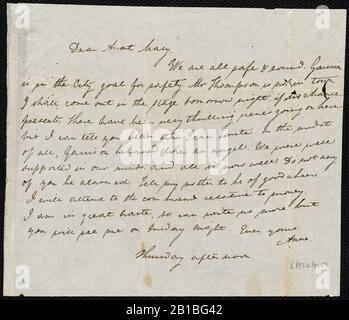 Dear Aunt Mary,
We are all safe & sound Garrison
is in the City goal for safety. Mr Thompson is not in town
I shall come out in the stage tomorrow night, if chance
presents. There have been very thrilling scenes going on here
but I can tell you better than I can write. In the midst
of all, Garrison behaved like an angel. We were well
supported in our minds and are so now well. Do not any
of you be alarmed. Tell my mother to be of good cheer
I will attend to the command relative to money.
I am in great haste, so can write no more but
you will see me on Friday night. Ever yours
Anne.
Thursday afternoon
alamy
Image ID: 2B1BG42
www.alamy.com